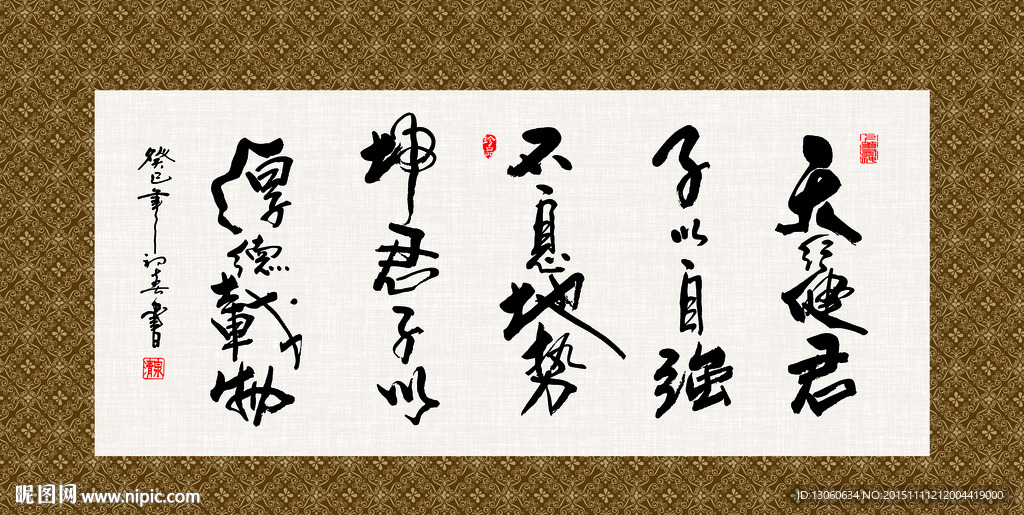 天行健君
子以自强
不息地势
坤君子以
厚德载物
癸巳年初春书
昵图网 www.nipic.com
ID:13060634 NO.20151111212004419000